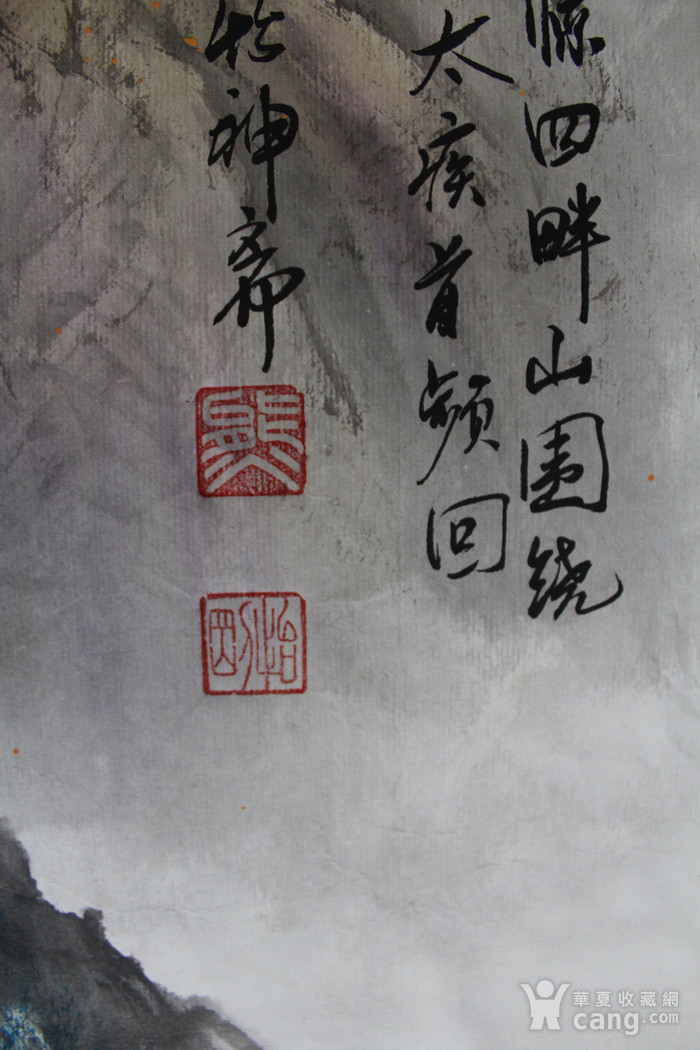 四畔山圍繞
太疾首頻回
神齋
華夏收藏網
cang.com